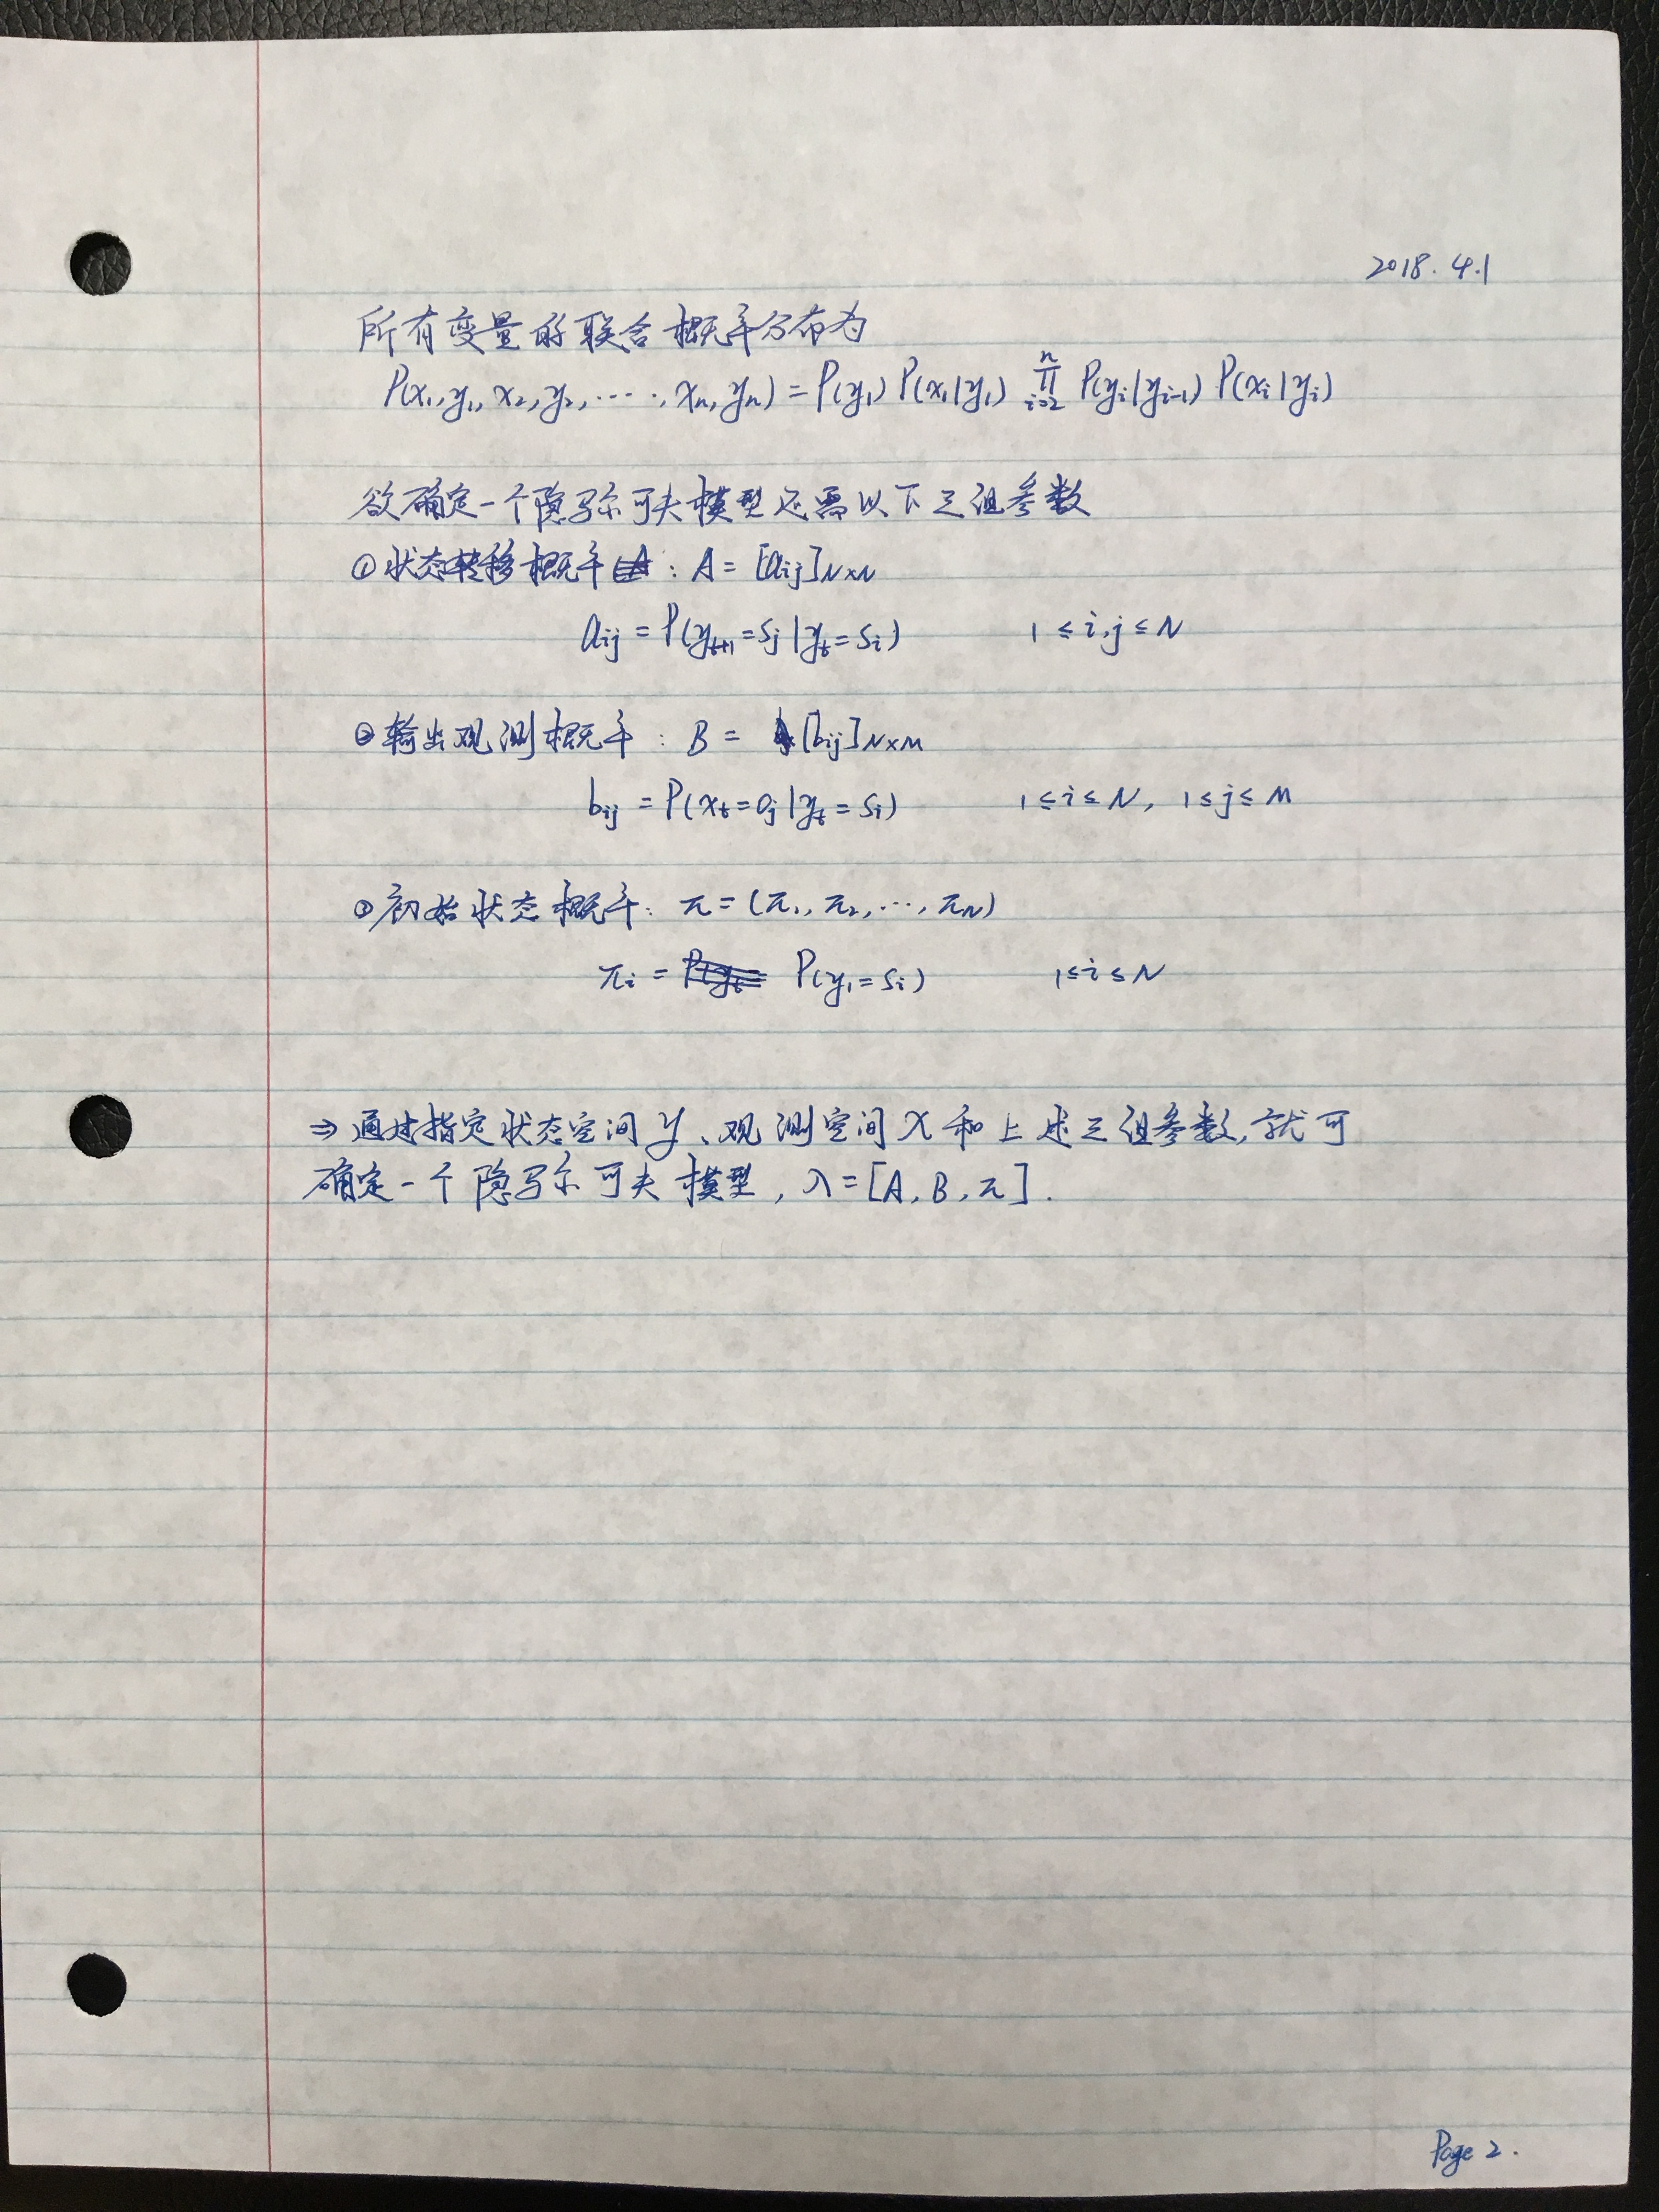 2018.4.1
所有变量的联合概率分布为
P(x₁,y₁,x₂,y₂,····,xₙ,yₙ)=P(y₁)P(x₁|y₁) ∏ⁿᵢ₌₂ P(yᵢ|yᵢ₋₁) P(xᵢ|yᵢ)
欲确定一个隐马尔可夫模型还需以下三组参数
① 状态转移概率: A = [aᵢⱼ]N×N
aᵢⱼ = P(yₜ₊₁=sⱼ|yₜ=sᵢ) 1 ≤ i,j ≤ N
② 输出观测概率: B = [bᵢⱼ]N×M
bᵢⱼ = P(xₜ=oⱼ|yₜ=sᵢ) 1≤i≤N, 1≤j≤M
③ 初始状态概率: π=(π₁,π₂,···,πN)
πᵢ = P(y₁=sᵢ) 1≤i≤N
⇒ 通过指定状态空间Y、观测空间X和上述三组参数,就可
确定一个隐马尔可夫模型, λ=[A,B,π].
Page 2.